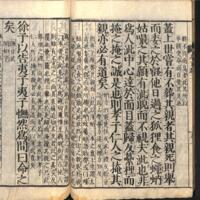 蓋上世嘗有不葬其親者其親死則舉
而委之於壑他日過之狐狸食之蠅蚋
姑嘬之其顙有泚睨而不視夫泚也非
為人泚中心達於面目蓋歸反虆梩而
掩之掩之誠是也則孝子仁人之掩其
親亦必有道矣
徐子以告夷子夷子憮然為間曰命之
矣